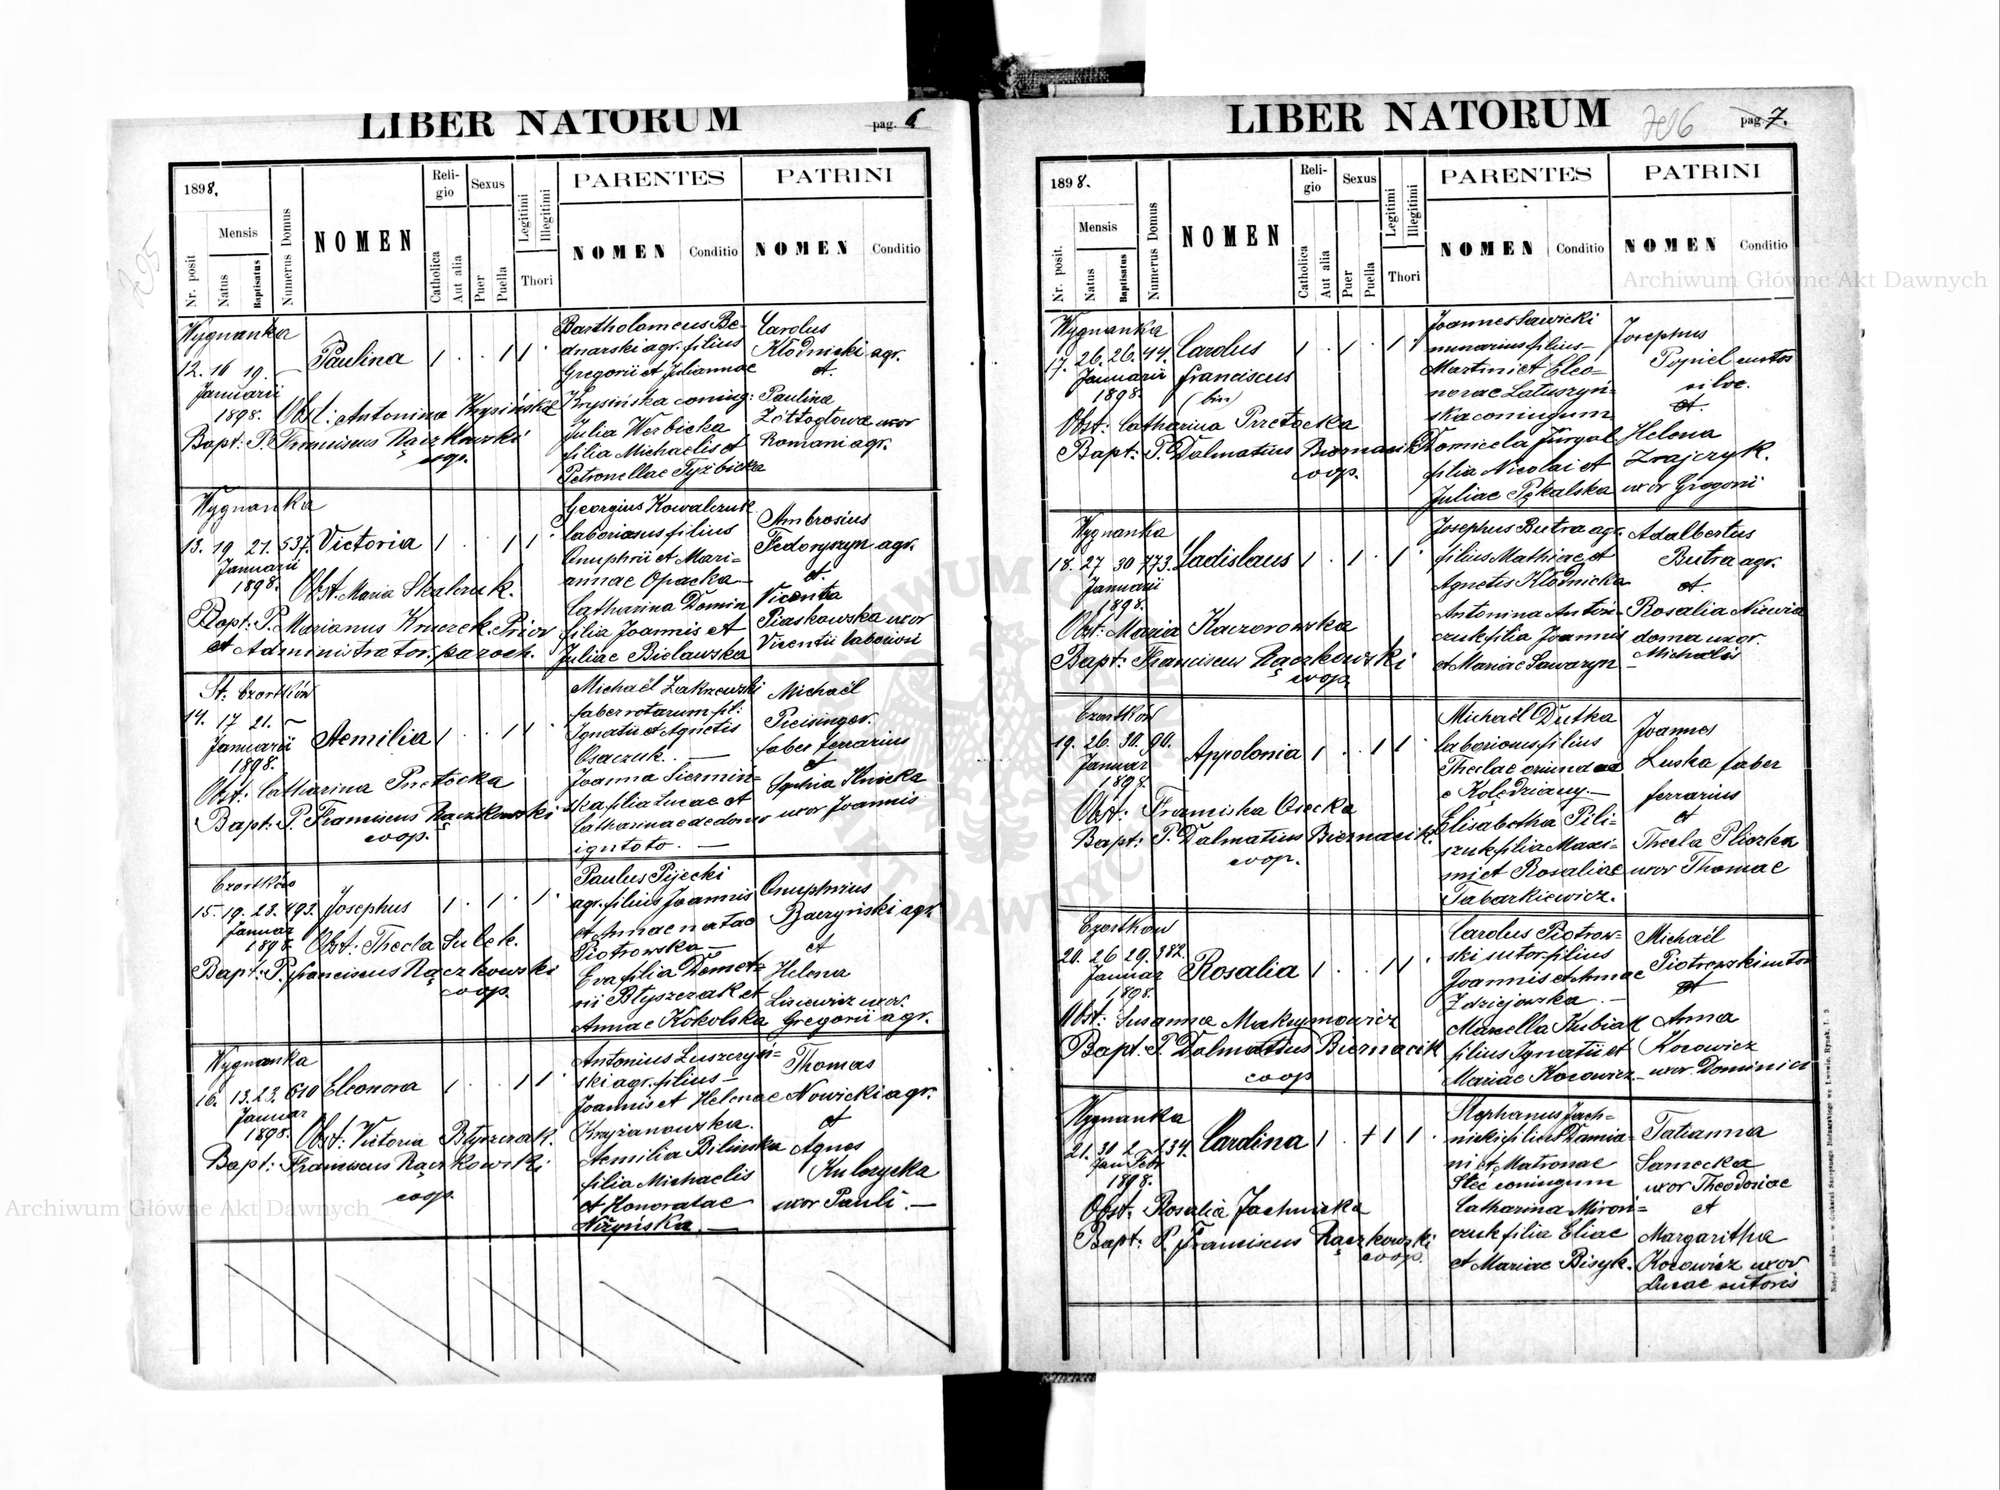 LIBER NATORUM
pag. 6
1898.
Mensis
Nr. posit.
Natus
Baptisatus
Numerus Domus
NOMEN
Religio
Catholica
Aut alia
Sexus
Puer
Puella
Legitimi
Illegitimi
Thori
PARENTES
NOMEN
Conditio
PATRINI
NOMEN
Conditio
Wygnanka
12. 16 19. —
Januarii
1898.
Paulina
Obst: Antonina Krysińska
Bapt: P. Franciscus Rączkowski
coop.
Bartholomeus Be-
dnarski agr. filius
Gregorii et Juliannae
Krysińska coniug:
Julia Werbicka
filia Michaelis et
Petronellae Tyźbicka
Carolus
Kłodnicki agr.
et.
Paulina
Żółtogłowa uxor
Romani agr.
Wygnanka
13. 19 21. 537.
Januarii
1898.
Victoria
Obst. Maria Skalczuk.
Bapt: P. Marianus Kmerek. Prior
et Administrator. paroch.
Georgius Kowalczuk
laboriosus filius
Onuphrii et Mari-
annae Opacka
Catharina Domin
filia Joannis et
Juliae Bielawska
Ambrosius
Fedoryszyn agr.
et.
Vicenta
Piaskowska uxor
Vicentii laboriosi
St. Czortków
14. 17 21. —
Januarii
1898.
Aemilia
Obst: Catharina Przetocka
Bapt: P. Franciscus Rączkowski
coop.
Michaël Zakrzewski
faber rotarum fil:
Ignatii et Agnetis
Osaczuk. —
Joanna Siermiń-
ska filia Lucae et
Catharinae de domo
ignoto. —
Michaël
Preisinger.
faber ferrarius
et
Sophia Ilnicka
uxor Joannis
Czortków
15. 19. 23. 493.
Januar
1898
Josephus
Obst: Thecla Sulek.
Bapt: P. Franciscus Rączkowski
coop.
Paulus Pijecki
agr. filius Joannis
et Annae natae
Piotrowska —
Eva filia Demet-
rii Błyszczak et
Annae Kokolska
Onuphrius
Baczyński agr.
et
Helena
Lisiewicz uxor
Gregorii agr.
Wygnanka
16. 13. 23. 610
Januar
1898.
Eleonora
Obst: Victoria Błyszczak.
Bapt: Franciscus Rączkowski
coop.
Antonius Luszczyń-
ski agr. filius —
Joannis et Helenae
Krzyżanowska.
Aemilia Bilinska
filia Michaelis
et Honoratae
Niżyńska. —
Thomas
Nowicki agr.
et
Agnes
Kulczycka
uxor Pauli. —
LIBER NATORUM
pag 7.
1898.
Mensis
Nr. posit.
Natus
Baptisatus
Numerus Domus
NOMEN
Religio
Catholica
Aut alia
Sexus
Puer
Puella
Legitimi
Illegitimi
Thori
PARENTES
NOMEN
Conditio
PATRINI
NOMEN
Conditio
Wygnanka
17. 26. 26. 44.
Januarii
1898.
Carolus
Franciscus
(bin)
Obst: Catharina Przetocka
Bapt: P. Dalmatius Biernacik
coop.
Joannes Sawicki
murarius filius —
Martini et Eleo-
norae Latuszyń-
ska coniugum
Domicela Jurgal
filia Nicolai et
Juliae Pękalska
Josephus
Popiel custos
silve.
et.
Helena
Zrajczyk.
uxor Gregorii
Wygnanka
18. 27 30 773.
Januarii
1898.
Ladislaus
Obst: Maria Kaczorowska
Bapt: Franciscus Rączkowski
coop.
Josephus Butra agr.
filius Mathiae et
Agnetis Kłodnicka
Antonina Antoń-
czuk filia Joannis
et Mariae Sawaryn
Adalbertus
Butra agr.
et.
Rosalia Niewia
doma uxor.
Michalis
Czortków
19. 26. 30. 90.
Januar
1898.
Appolonia
Obst: Franciska Osecka
Bapt: P. Dalmatius Biernacik.
coop.
Michaël Dutka
laboriosus filius
Theclae oriunda
e Kolędziany. —
Elisabetha Pili-
szuk filia Maxi-
mi et Rosaliae
Tabarkiewicz.
Joannes
Luska faber
ferrarius
et
Thecla Pliszka
uxor Thomae
Czortków
20. 26 29. 382.
Januar
1898.
Rosalia
Obst: Susanna Maksymowicz
Bapt. P. Dalmatius Biernacik
coop
Carolus Piotrow-
ski sutor filius
Joannis et Annae
Zdziejowska. —
Marcella Kubiak
filius Ignatii et
Mariae Kocowicz
Michaël
Piotrowski sutor
et
Anna
Kocowicz
uxor Dominici
Wygnanka
21. 31 2. 234.
Jan Febr
1898.
Carolina
Obst. Rosalia Jachnicka
Bapt: P. Franciscus Rączkowski
coop.
Stephanus Jach-
nicki filius Damia-
ni et Matronae
Steć coniugum
Catharina Miroń-
czuk filia Eliae
et Mariae Bisyk.
Tatianna
Sarnecka
uxor Theodosiae
et
Margaritha
Kocowicz uxor
Lucae sutoris
Archiwum Główne Akt Dawnych
Archiwum Główne Akt Dawnych